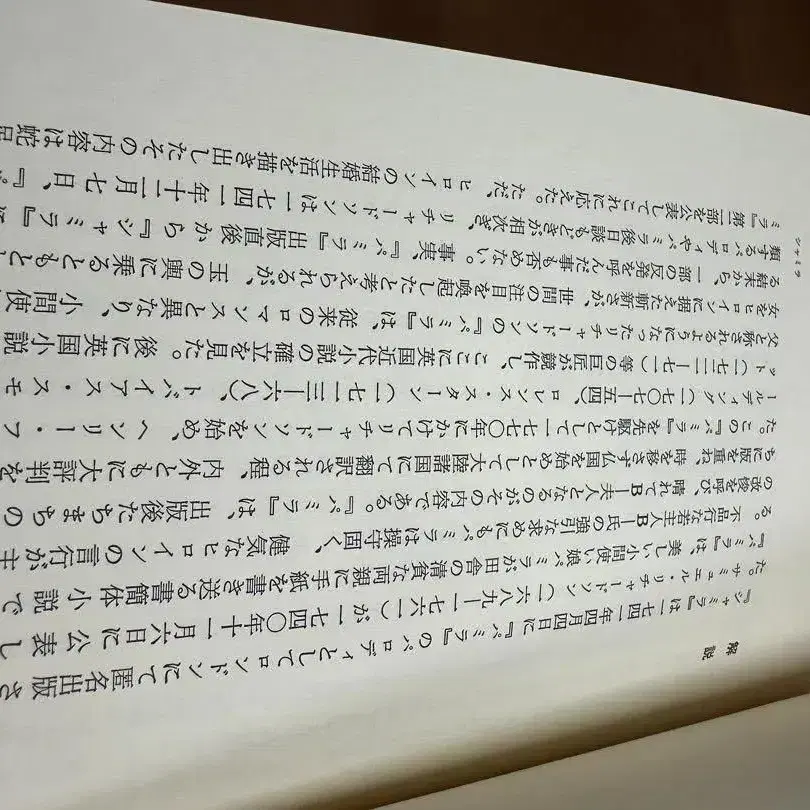 シャミラ
解説
『シャミラ』は一七四一年四月四日に『パミラ』のパロディとしてロンドンにて匿名出版さ
た。サミュエル・リチャードソン(一六八九―一七六一)が一七四〇年十一月六日に公表し
『パミラ』は、美しい小間使い娘パミラが田舎の清貧な両親に手紙を書き送る書簡体小説で
る。不品行な若主人B―氏の強引な求めにもパミラは操守固く、健気なヒロインの言行が
の改悛を呼び、晴れてB―夫人となるのがその内容である。『パミラ』は、出版後たちまちの
ち版を重ね、時を移さず仏国を始めとして大陸諸国にて翻訳される程、内外ともに大評判を
た。この『パミラ』を先駆けとして一七七〇年にかけてリチャードソンを始め、ヘンリー・フ
ールディング(一七〇七―五四)、ロレンス・スターン(一七一三―六八)、トバイアス・スモ
ット(一七二一―七一)等の巨匠が競作し、ここに英国近代小説の確立を見た。後に英国小説
父と称されるようになったリチャードソンの『パミラ』は、従来のロマンスと異なり、小間使
女をヒロインに据えた斬新さが、世間の注目を喚起したと考えられるが、玉の輿に乗るともと
る結末から、一部の反発を呼んだ事も否めない。事実、『パミラ』出版直後から『シャミラ』に
類するパロディやパミラ後日談もどきが相次ぎ、リチャードソンは一七四一年十二月七日、『パ
ミラ』第二部を公表してこれに応えた。ただ、ヒロインの結婚生活を描き出したその内容は蛇